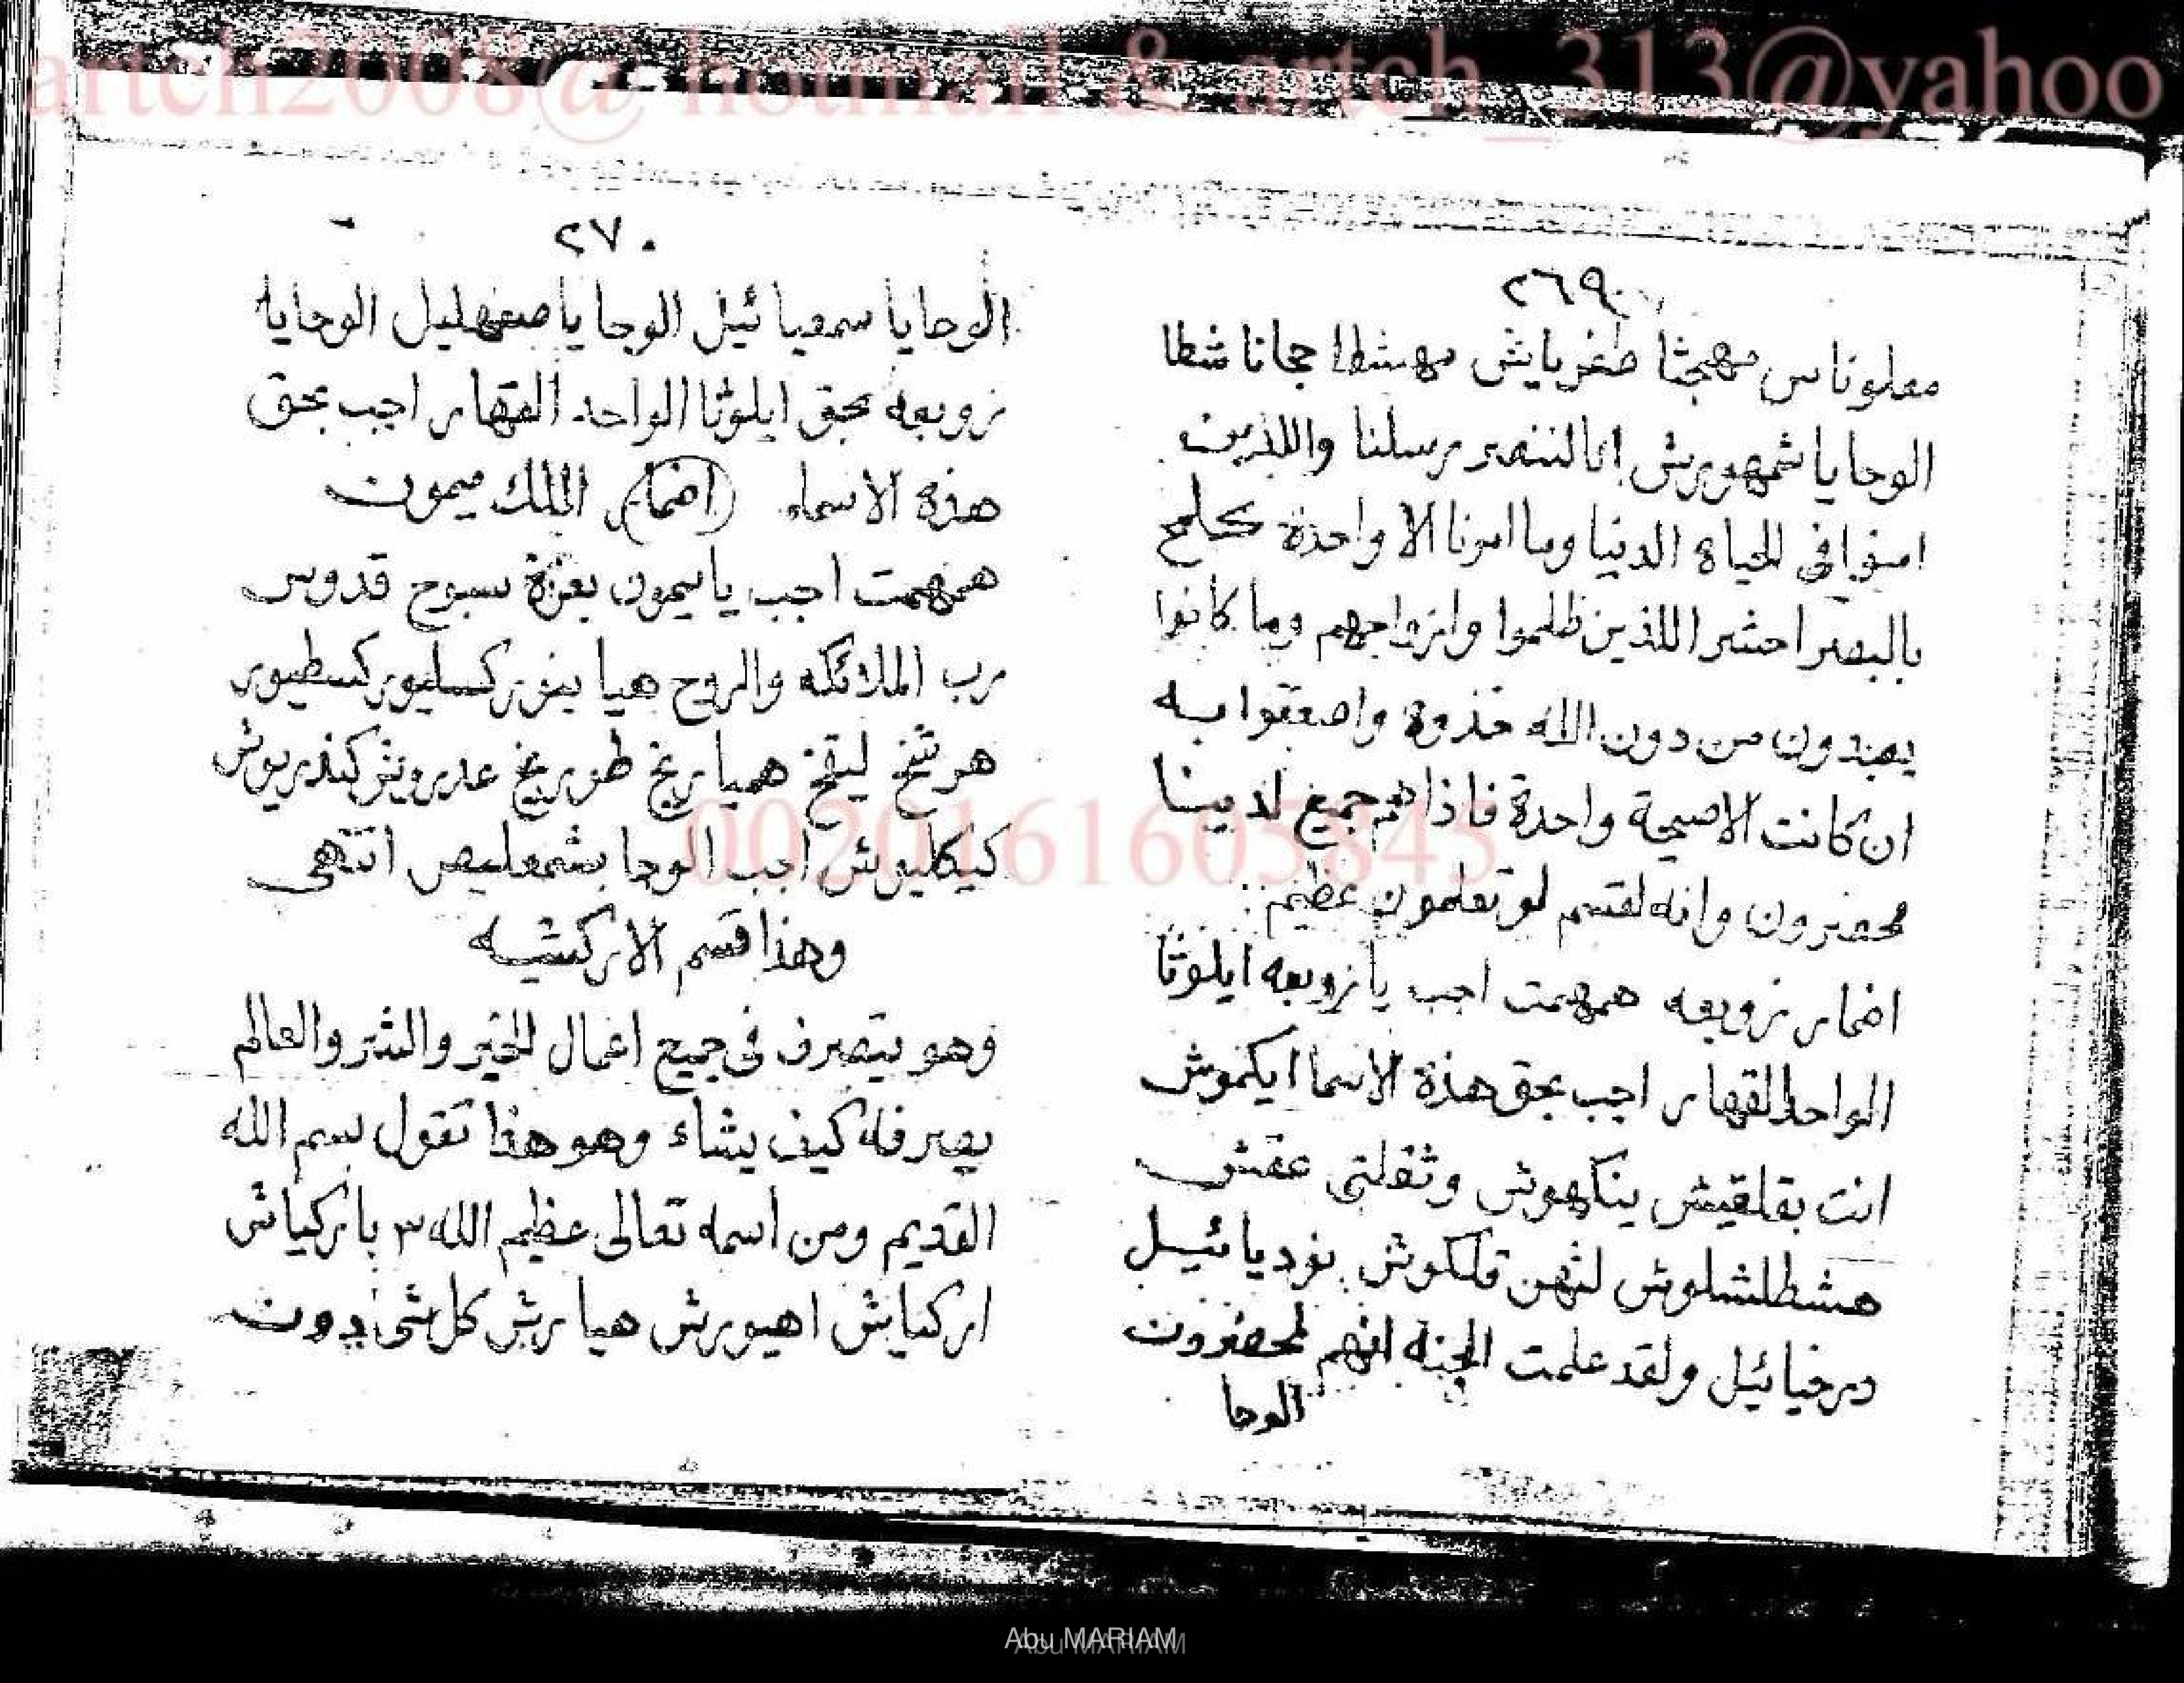 artch2008@ hotmail & artch_313@yahoo
٢٦٩
معلوناس مهجثا طغربايش مهشطا ججاناشطا
الوحا يا شمهورش انا لننصر رسلنا واللذين
امنوا فى الحياة الدنيا وما امرنا الا واحدة كلمح
بالبصر احشر اللذين ظلموا وازواجهم وما كانوا
يعبدون من دون الله خذوه واصعقوا به
ان كانت الا صيحة واحدة فاذا هم جميع لدينا
محضرون وانه لقسم لو تعلمون عظيم
اضمار زوبعه همهمت اجب يا زوبعه ايلوثا
الواحد القهار اجب بحق هذة الاسما ايكموش
انت بقلقيش ينكهوش وثقلتى عقش
هشطلشلوش لثهن قلكوش نوديائيل
درخيائيل ولقد علمت الجنه انهم لمحضرون
الوحا
٢٧٠
الوحا يا سمعيائيل الوحا يا صعهليل الوحا يا
زوبعه بحق ايلوثا الواحد القهار اجب بحق
هذه الاسماء (اضمار) الملك ميمون
همهمت اجب يا ميمون بعزة سبوح قدوس
رب الملائكه والروح هيا ينور كسليور كسطيور
هرتخ ليقخ هميا ريخ طوريخ عدرويش كندريوش
كيكليوش اجب الوحا بشمعليص انتهى
وهذا قسم الاركشيه
وهو يتصرف فى جميع اعمال الخير والشر والعالم
يصرفه كيف يشاء وهو هذا تقول بسم الله
القديم ومن اسمه تعالى عظيم الله ٣ باركياش
اركياش اهيورش هيا رش كل شى دون
0020161605845
Abu MARIAM